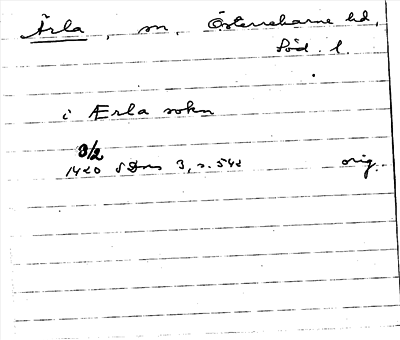 Ärla, sn, Österrekarne hd,
Söd. l.
i Ærla sokn
9/2
1420 SDns 3, s. 542 orig.